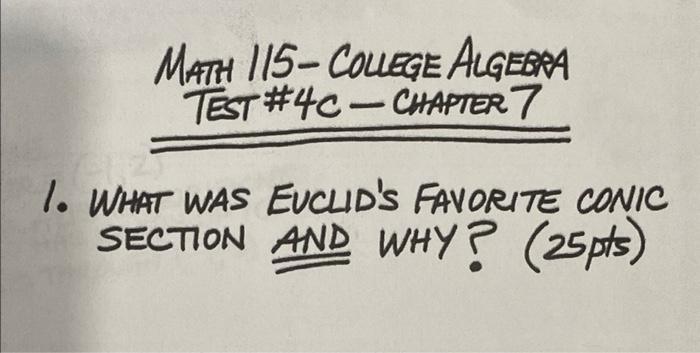 MATH 115 - COLLEGE ALGEBRA
TEST #4C - CHAPTER 7
1. WHAT WAS EUCLID'S FAVORITE CONIC
SECTION AND WHY? (25pts)